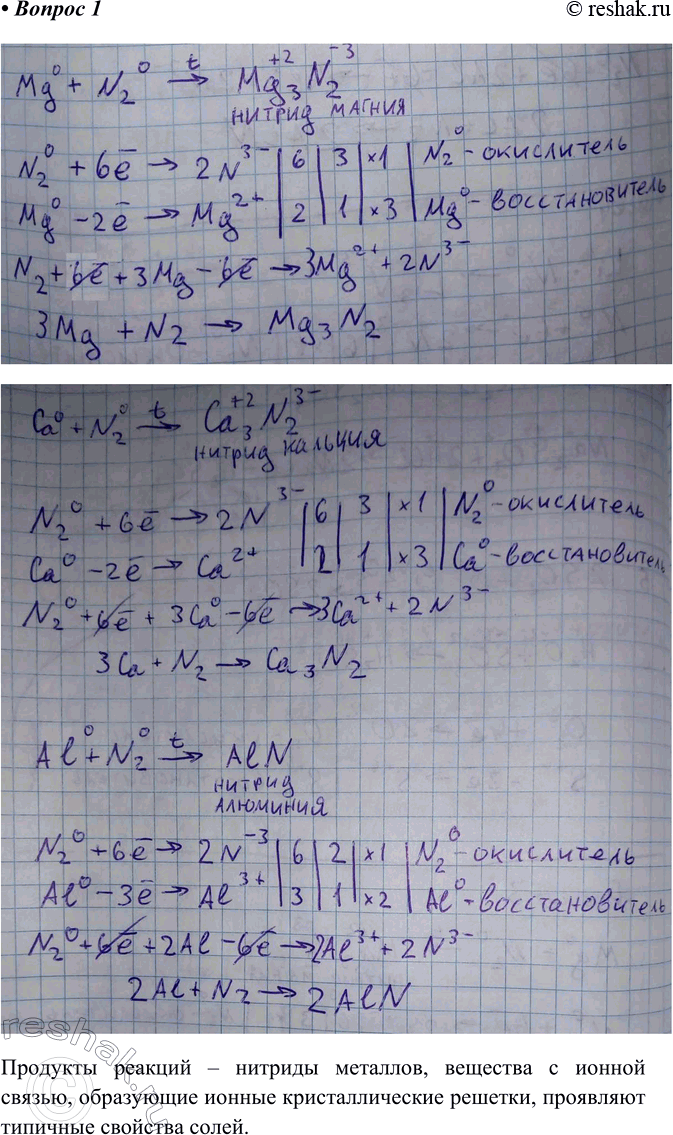 • Вопрос 1 © reshak.ru
Mg⁰ + N₂⁰ →(t) Mg₃⁺²N₂⁻³
НИТРИД МАГНИЯ
N₂⁰ + 6ē → 2N³⁻ | 6 | 3 | ×1 | N₂⁰ - окислитель
Mg⁰ - 2ē → Mg²⁺ | 2 | 1 | ×3 | Mg⁰ - восстановитель
N₂ + 6ē + 3Mg - 6ē → 3Mg²⁺ + 2N³⁻
3Mg + N2 → Mg₃N₂
Ca⁰ + N₂⁰ →(t) Ca₃⁺²N₂³⁻
НИТРИД КАЛЬЦИЯ
N₂⁰ + 6ē → 2N³⁻ | 6 | 3 | ×1 | N₂⁰ - окислитель
Ca⁰ - 2ē → Ca²⁺ | 2 | 1 | ×3 | Ca⁰ - восстановитель
N₂⁰ + 6ē + 3Ca⁰ - 6ē → 3Ca²⁺ + 2N³⁻
3Ca + N₂ → Ca₃N₂
Al⁰ + N₂⁰ →(t) AlN
НИТРИД
АЛЮМИНИЯ
N₂⁰ + 6ē → 2N⁻³ | 6 | 2 | ×1 | N₂⁰ - окислитель
Al⁰ - 3ē → Al³⁺ | 3 | 1 | ×2 | Al⁰ - восстановитель
N₂⁰ + 6ē + 2Al - 6ē → 2Al³⁺ + 2N³⁻
2Al + N₂ → 2AlN
Продукты реакций – нитриды металлов, вещества с ионной
связью, образующие ионные кристаллические решетки, проявляют
типичные свойства солей.
© reshak.ru